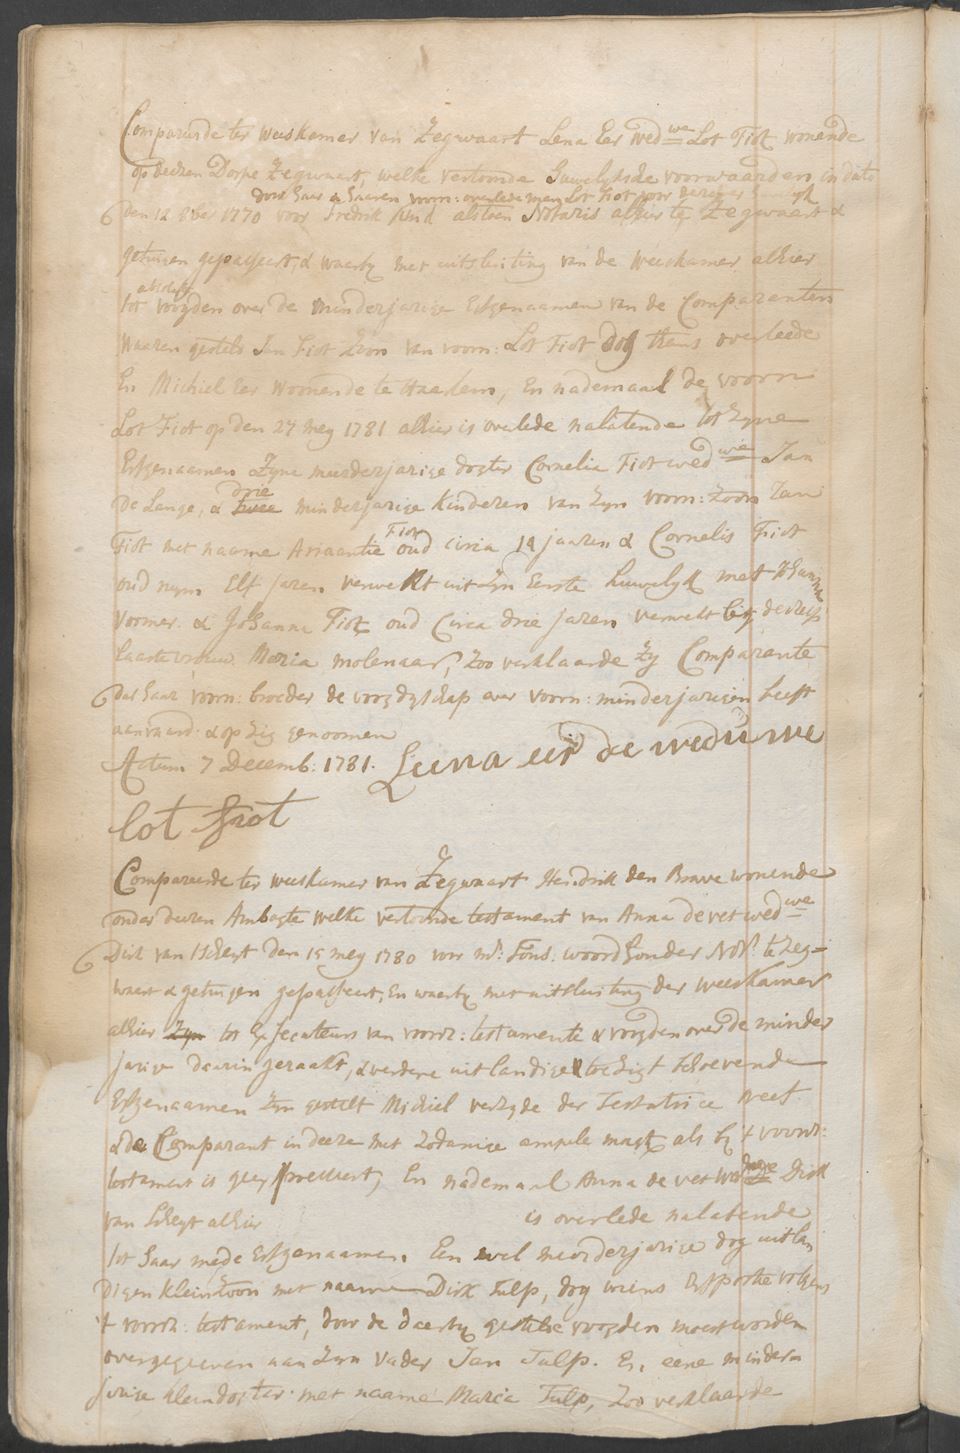 Compareerde ter weeskamer van Zegwaart Lena Eer wed:we Lot Fiot wonende
op deezen Dorpe Zegwaart, welke vertoonde Huwelyksche voorwaarden in dato
door haar & haaren voorn: overlede man Lot Fiot voor derzelver Huwelyk
den 12 8ber 1770 voor Fredrik alstoen Notaris alhier te Zegwaart &
getuigen gepasseert, & waarby met uitsluiting van de weeskamer alhier
absolute
tot voogden over de minderjarige Erfgenaamen van de Comparanten
waaren gesteld Jan Fiot Zoon van voorn: Lot Fiot dog thans overleede
En Michiel Eer woonende te Haarlem, En nademaal de voorn
Lot Fiot op den 27 mey 1781 alhier is overlede nalatende tot Zyne
Erfgenaamen Zyne meerderjarige dogter Cornelia Fiot wed:we Jan
drie
De Lange, & twee minderjarige kinderen van Zyn voorn: Zoon Jan
Fiot
Fiot met naame Ariaantie oud circa 14 jaaren & Cornelis Fiot
oud ruym Elf jaren verwekt uit Zyn Eerste huwelyk met Johanna
Vormer. & Johanna Fiot oud Circa drie jaren verwekt by deszelfs
laaste vrouw Maria molenaar, Zoo verklaarde Zy Comparante
dat haar voorn: broeder de voogdyschap over voorn: minderjarigen heeft
aanvaard & op Zig genoomen
Actum 7 Decemb: 1781. Leena eer de weduwe
lot fiot
Compareerde ter weeskamer van Zegwaart Hendrik den Brave wonende
onder deezen Ambagte welke vertoonde testament van Anna de vet wed:we
Dirk van Scheyt den 15 mey 1780 voor mr: Fons: woordhouder Nots. te Zeg-
waart & getuigen gepasseert, En waarby met uitsluiting der weeskamer
alhier Zyn tot Executeurs van voorn: testamente & voogden over de minder
jarige daarin geraakt, & verdere uitlandige toezigt behoevende
Erfgenaamen Zyn gestelt Michiel verzyde der Testatrice neef
& de Comparant in deeze met Zodanige ampele magt als by 't voorn:
testament is geexpresseert, En nademaal Anna de vet wed:we Dirk
van Scheyt alhier is overlede nalatende
tot haar mede Erfgenaamen. Een wel meerderjarige dog uitlan
digen kleinzoon met naame Dirk Tulp, dog wiens Erfportie volgens
't voorn: testament, door de daarby gestelde voogden moest worden
overgegeeven aan Zyn Vader Jan Tulp. En eene minder
jarige kleindogter met naame Maria Tulp, Zoo verklaarde